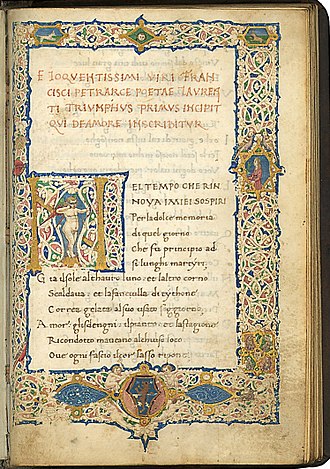 ELOQVENTISSIMI VIRI FRAN
CISCI PETRARCE POETAE LAVREN
TI TRIVMPHVS PRIMVS INCIPIT
QVI DE AMORE INSCRIBITVR
N
EL TEMPO CHE RIN
NOVA I MIEI SOSPIRI
Per la dolce memoria
di quel giorno
Che fu principio ad
si lunghi martyri
Gia il sole al thauro luno et laltro corno
Scaldava et la fanciulla di tythone
Correa gelata al suo usato soggiorno
Amor gli sdengni il pianto et la stagione
Ricondotto maveano al chiuso loco
Ove ogni fascio il cor lasso ripone